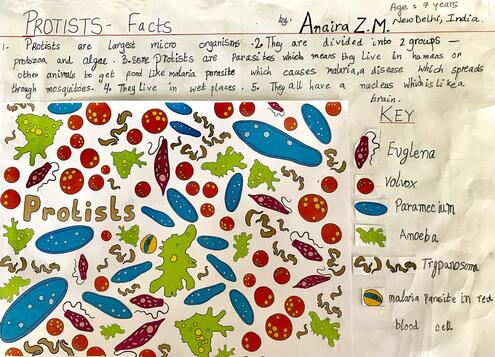 PROTISTS - Facts
by: Anaira Z.M.
Age : 7 years
New Delhi, India.
1. Protists are largest micro organisms .2. They are divided into 2 groups —
protozoa and algae . 3. some Protists are Parasites which means they live in humans or
other animals to get food like malaria parasite which causes malaria, a disease which spreads
through mosquitoes. 4. They Live in wet places . 5. They all have a nucleus which is like a
brain.
Protists
KEY
Euglena
Volvox
Paramecium
Amoeba
Trypanosoma
malaria Parasite in red
blood cell